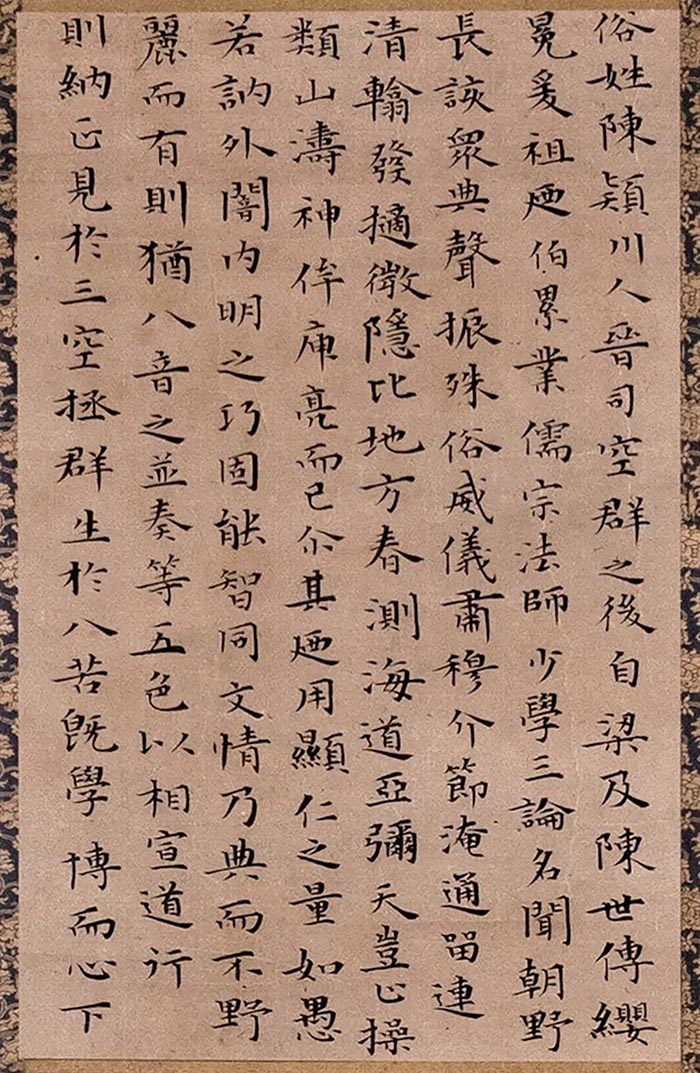 俗姓陳潁川人晉司空群之後自梁及陳世傳纓
冕爰祖迺伯累業儒宗法師少學三論名聞朝野
長該眾典聲振殊俗威儀肅穆介節淹通留連
清翰發擿微隱比地方春測海道亞彌天豈止操
類山濤神侔庾亮而已尒其迺用顯仁之量如愚
若訥外闇内明之巧固能智同文情乃典而不野
麗而有則猶八音之並奏等五色以相宣道行
則納正見於三空拯群生於八苦既學博而心下